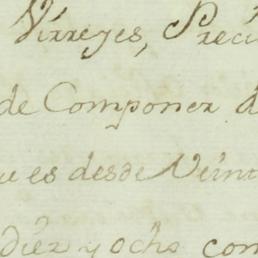 Virreyes, Preci
de Componer d
u es desde Veint
diez y ocho con